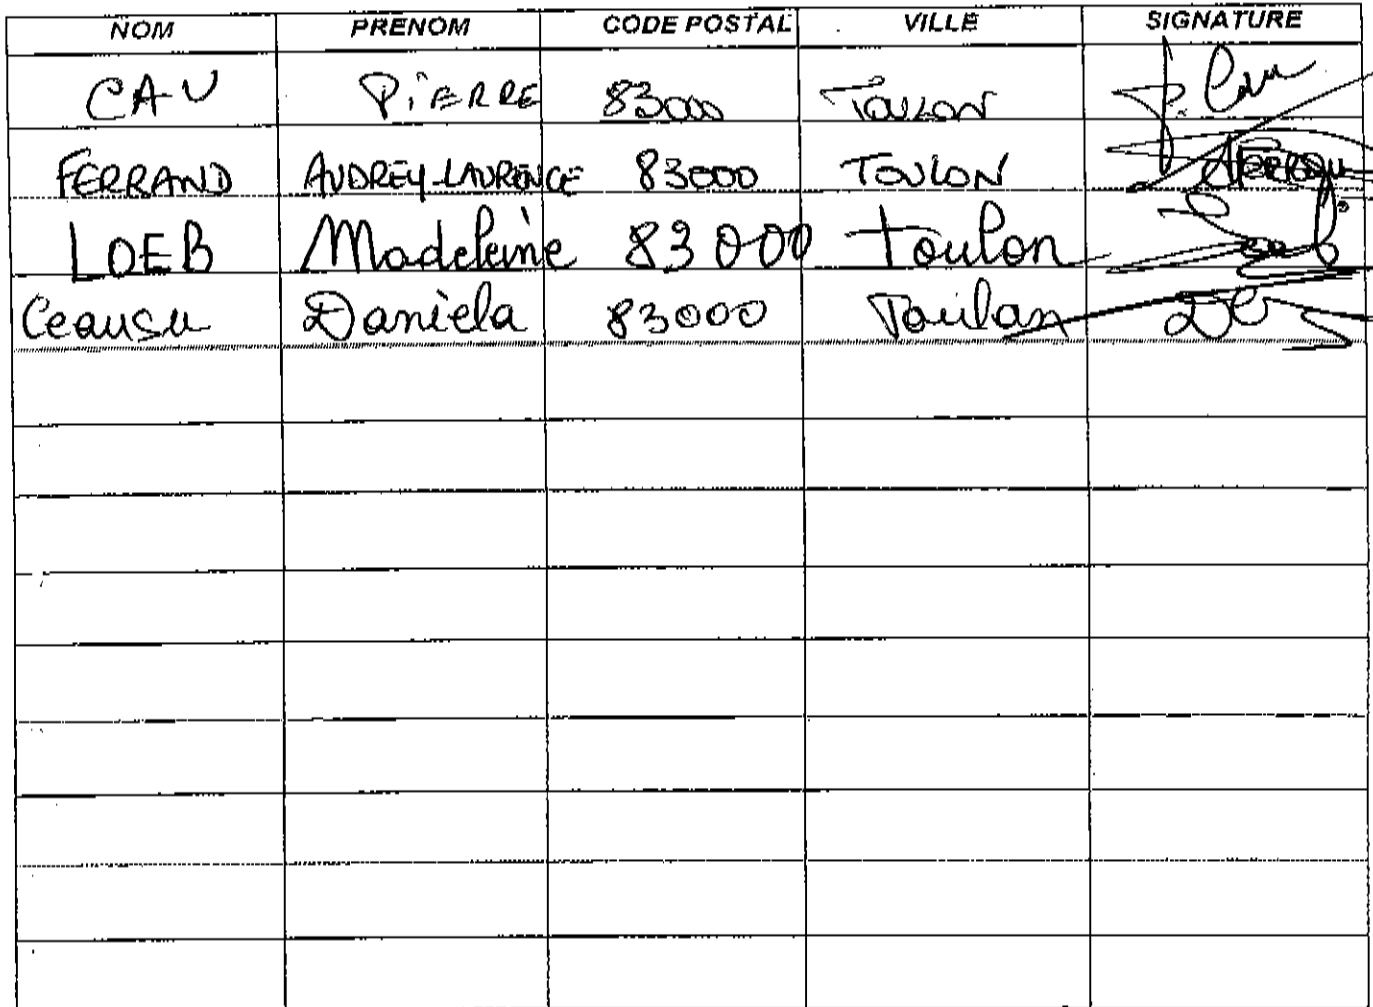 NOM PRENOM CODE POSTAL VILLE SIGNATURE
CAU PiERRE 83000 TOULON P. Cau
FERRAND AUDREY-LAURENCE 83000 TOULON
LOEB Madeleine 83000 Toulon Loeb
Ceausu Daniela 83000 Toulon